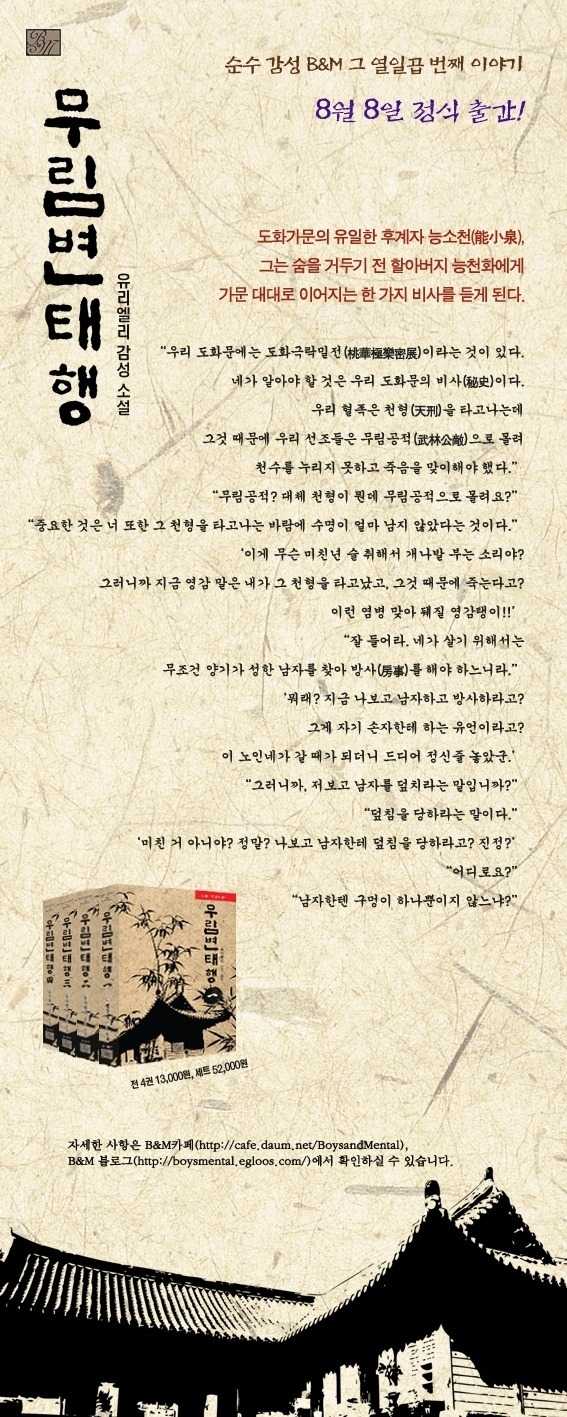 BM
순수 감성 B&M 그 열일곱 번째 이야기
8월 8일 정식 출간!
무림변태행
유리엘리 감성 소설
도화가문의 유일한 후계자 능소천(能小泉),
그는 숨을 거두기 전 할아버지 능천화에게
가문 대대로 이어지는 한 가지 비사를 듣게 된다.
“우리 도화문에는 도화극락밀전(桃華極樂密展)이라는 것이 있다.
네가 알아야 할 것은 우리 도화문의 비사(秘史)이다.
우리 혈족은 천형(天刑)을 타고나는데
그것 때문에 우리 선조들은 무림공적(武林公敵)으로 몰려
천수를 누리지 못하고 죽음을 맞이해야 했다.”
“무림공적? 대체 천형이 뭔데 무림공적으로 몰려요?”
“중요한 것은 너 또한 그 천형을 타고나는 바람에 수명이 얼마 남지 않았다는 것이다.”
‘이게 무슨 미친년 술 취해서 개나발 부는 소리야?
그러니까 지금 영감 말은 내가 그 천형을 타고났고, 그것 때문에 죽는다고?
이런 염병 맞아 뒈질 영감탱이!!’
“잘 들어라. 네가 살기 위해서는
무조건 양기가 성한 남자를 찾아 방사(房事)를 해야 하느니라.”
‘뭐래? 지금 나보고 남자하고 방사하라고?
그게 자기 손자한테 하는 유언이라고?
이 노인네가 갈 때가 되더니 드디어 정신줄 놓았군.’
“그러니까, 저보고 남자를 덮치라는 말입니까?”
“덮침을 당하라는 말이다.”
‘미친 거 아니야? 정말? 나보고 남자한테 덮침을 당하라고? 진정?’
“어디로요?”
“남자한텐 구멍이 하나뿐이지 않느냐?”
무림변태행 四
무림변태행 三
무림변태행 二
무림변태행 一
무림변태행 一
전 4권 13,000원, 세트 52,000원
자세한 사항은 B&M카페(http://cafe.daum.net/BoysandMental),
B&M 블로그(http://boysmental.egloos.com/)에서 확인하실 수 있습니다.